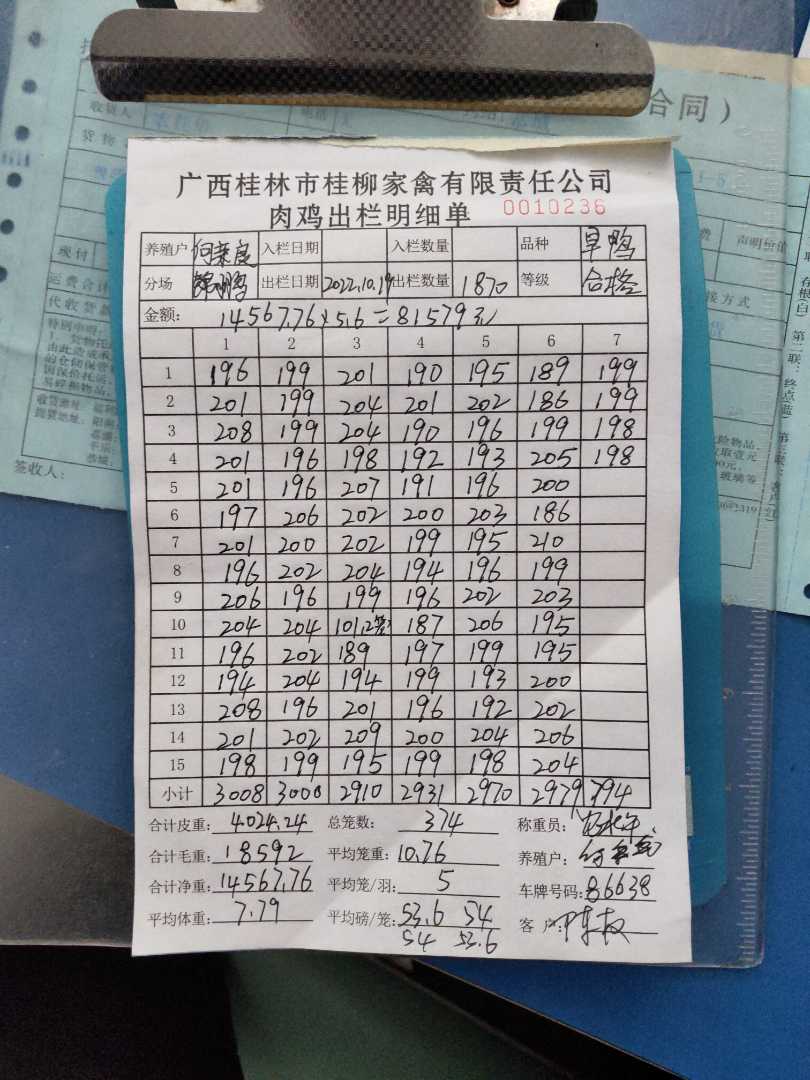 合同）
广西桂林市桂柳家禽有限责任公司
肉鸡出栏明细单 0010236
养殖户 入栏日期 入栏数量 品种 旱鸭
分场 锦鹏 出栏日期 2022.10.19 出栏数量 1870 等级 合格
金额： 14567.76×5.6=81579元
1 2 3 4 5 6 7
1 196 199 201 190 195 189 199
2 201 199 204 201 202 186 199
3 208 199 204 190 196 199 198
4 201 196 198 192 193 205 198
5 201 196 207 191 196 200
6 197 206 202 200 203 186
7 201 200 202 199 195 210
8 196 202 204 194 196 199
9 206 196 199 196 202 203
10 204 204 101,2笼 187 206 195
11 196 202 189 197 199 195
12 194 204 194 199 193 200
13 208 196 201 196 192 202
14 201 202 209 200 204 206
15 198 199 195 199 198 204
小计 3008 3000 2910 2931 2970 2979 794
合计皮重： 4024.24 总笼数： 374 称重员：
合计毛重： 18592 平均笼重： 10.76 养殖户：
合计净重： 14567.76 平均笼/羽： 5 车牌号码： 86638
平均体重： 7.79 平均磅/笼： 53.6 54 客 户：
54 53.6
签收人：